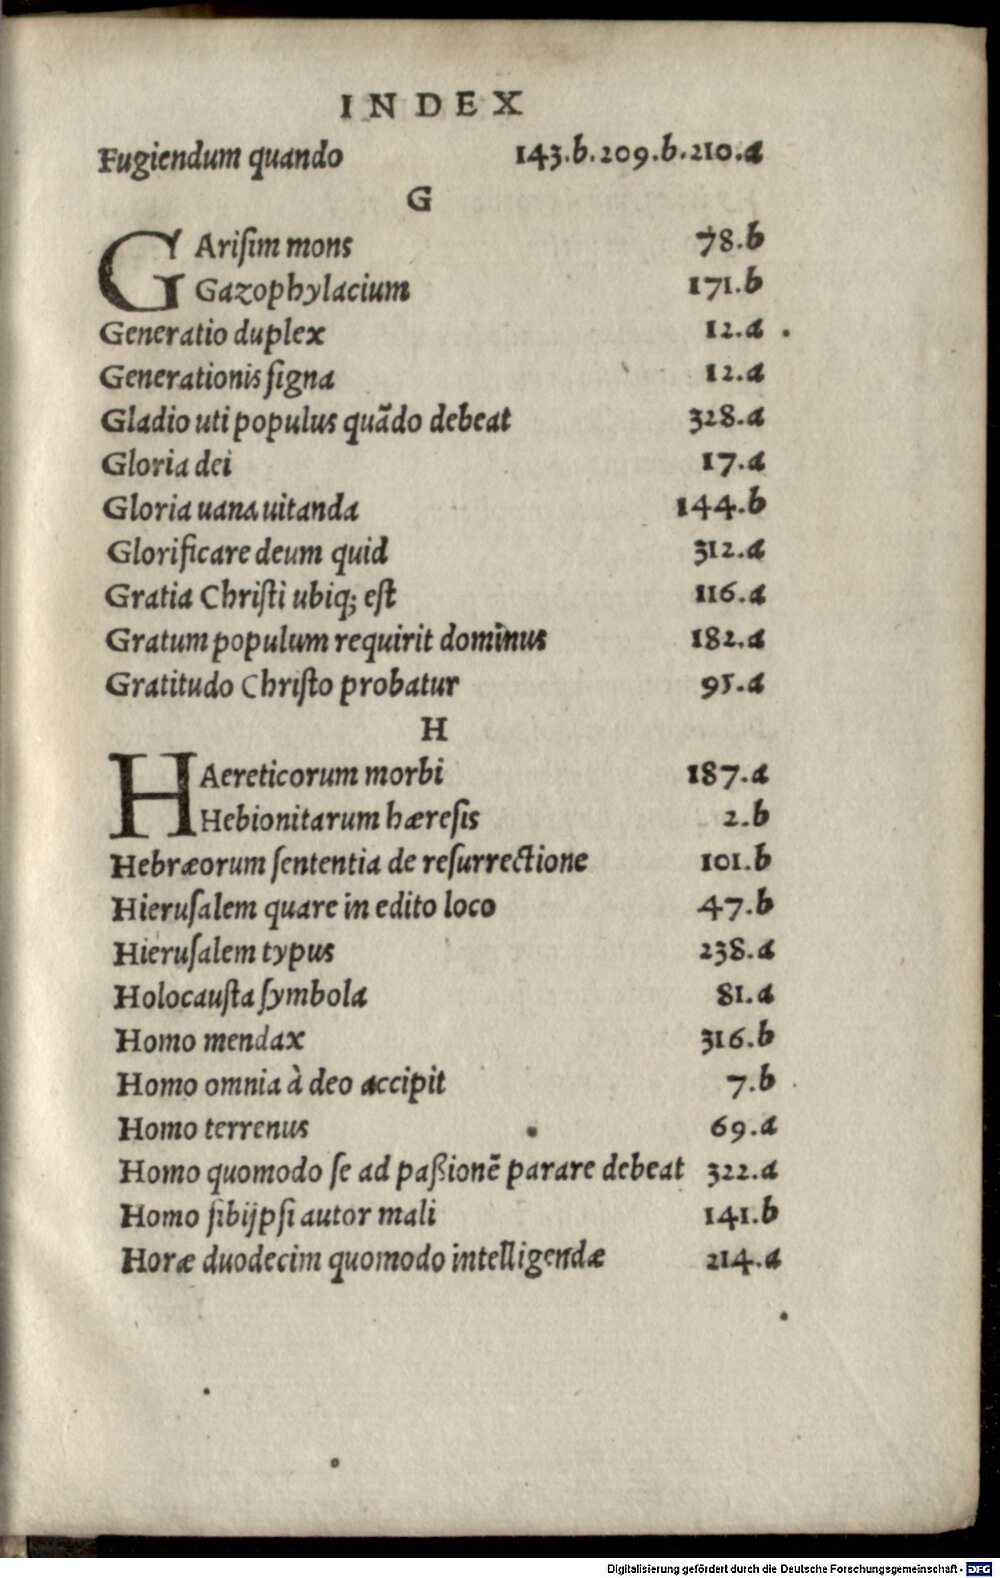 INDEX
Fugiendum quando 143.b.209.b.210.a
G
GAriſim mons 78.b
Gazophylacium 171.b
Generatio duplex 12.a
Generationis ſigna 12.a
Gladio uti populus quãdo debeat 328.a
Gloria dei 17.a
Gloria uana uitanda 144.b
Glorificare deum quid 312.a
Gratia Chriſti ubiq; eſt 116.a
Gratum populum requirit dominus 182.a
Gratitudo Chriſto probatur 95.a
H
HAereticorum morbi 187.a
Hebionitarum hæreſis 2.b
Hebræorum ſententia de reſurrectione 101.b
Hieruſalem quare in edito loco 47.b
Hieruſalem typus 238.a
Holocauſta ſymbola 81.a
Homo mendax 316.b
Homo omnia à deo accipit 7.b
Homo terrenus 69.a
Homo quomodo ſe ad paßionẽ parare debeat 322.a
Homo ſibijpſi autor mali 141.b
Horæ duodecim quomodo intelligendæ 214.a
Digitalisierung gefördert durch die Deutsche Forschungsgemeinschaft - DFG